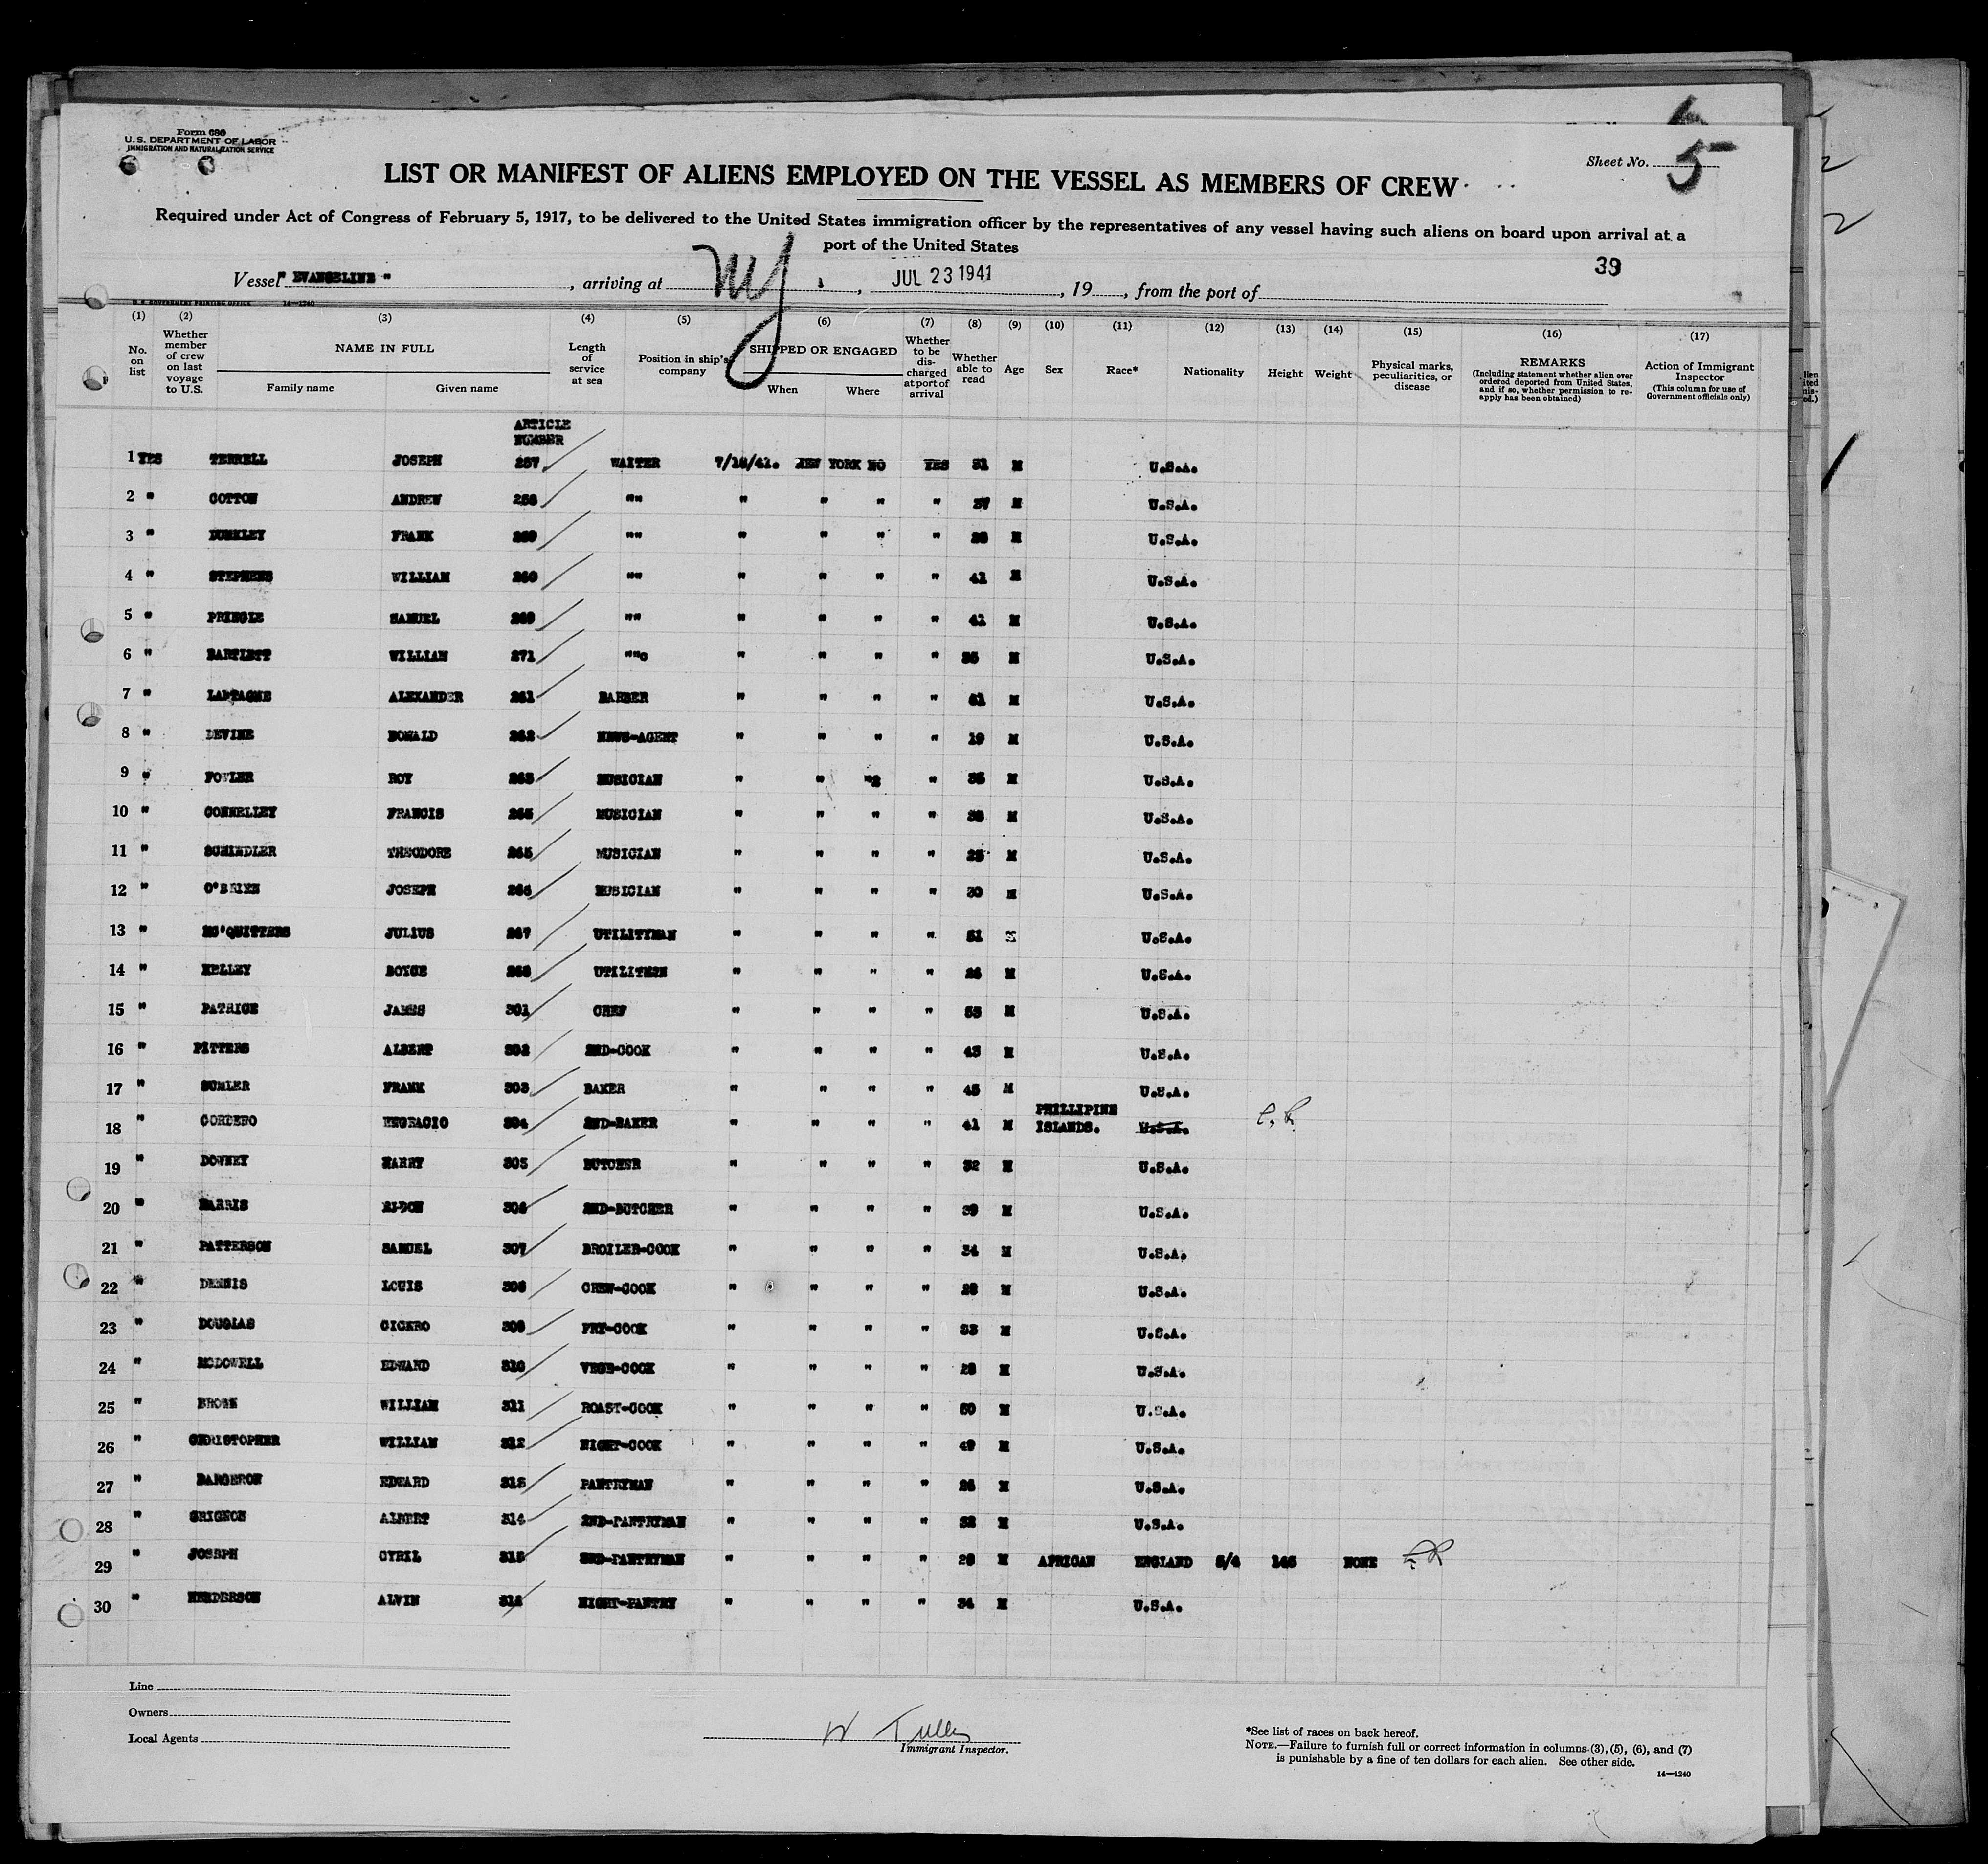 Form 680
U. S. DEPARTMENT OF LABOR
IMMIGRATION AND NATURALIZATION SERVICE
Sheet No. 5
LIST OR MANIFEST OF ALIENS EMPLOYED ON THE VESSEL AS MEMBERS OF CREW
Required under Act of Congress of February 5, 1917, to be delivered to the United States immigration officer by the representatives of any vessel having such aliens on board upon arrival at a
port of the United States
39
Vessel " EVANGELINE ", arriving at NY, JUL 23 1941, 19, from the port of
U. S. GOVERNMENT PRINTING OFFICE 14—1240
(1) (2) (3) (4) (5) (6) (7) (8) (9) (10) (11) (12) (13) (14) (15) (16) (17)
No. on list
Whether member of crew on last voyage to U.S.
NAME IN FULL
Family name
Given name
Length of service at sea
Position in ship's company
SHIPPED OR ENGAGED
When
Where
Whether to be dis-charged at port of arrival
Whether able to read
Age
Sex
Race*
Nationality
Height
Weight
Physical marks, peculiarities, or disease
REMARKS
(Including statement whether alien ever ordered deported from United States, and if so, whether permission to re-apply has been obtained)
Action of Immigrant Inspector
(This column for use of Government officials only)
ARTICLE
NUMBER
1 YES TERRELL JOSEPH 257 WAITER NEW YORK NO YES 31 M U.S.A.
2 " COTTON ANDREW 258 "" " " " " 37 M U.S.A.
3 " DUNKLEY FRANK 259 "" " " " " M U.S.A.
4 " STEPHENS WILLIAM 260 "" " " " " 41 M U.S.A.
5 " PRINGLE SAMUEL 269 "" " " " " 41 M U.S.A.
6 " BARTLETT WILLIAM 271 "" " " " " M U.S.A.
7 " ALEXANDER 261 BARBER " " " " M U.S.A.
8 " DEVINE DONALD 262 NEWS-AGENT " " " " 19 M U.S.A.
9 " FOWLER ROY 263 MUSICIAN " " " " M U.S.A.
10 " CONNELLEY FRANCIS MUSICIAN " " " " M U.S.A.
11 " SCHINDLER THEODORE 265 MUSICIAN " " " " 25 M U.S.A.
12 " O'BRIEN JOSEPH MUSICIAN " " " " 30 M U.S.A.
13 " MC'QUITTERS JULIUS 267 UTILITYMAN " " " " 51 U.S.A.
14 " KELLEY BOYCE 268 UTILITMEN " " " " M U.S.A.
15 " PATRICE JAMES 301 CHEF " " " " M U.S.A.
16 " PITTERS ALBERT 302 2ND-COOK " " " " 43 M U.S.A.
17 " SUMLER FRANK 303 BAKER " " " " 45 M U.S.A.
18 " CORDERO ENGRACIO 304 2ND-BAKER " " " " 41 M PHILLIPINE ISLANDS. U.S.A.
19 " DOWNEY HARRY 305 BUTCHER " " " " 32 M U.S.A.
20 " HARRIS ELDON 306 2ND-BUTCHER " " " " 39 M U.S.A.
21 " PATTERSON SAMUEL 307 BROILER-COOK " " " " 34 M U.S.A.
22 " DENNIS LOUIS 308 CREW-COOK " " " " 28 M U.S.A.
23 " DOUGLAS CICERO 309 FRY-COOK " " " " 33 M U.S.A.
24 " MCDOWELL EDWARD 310 VEGE-COOK " " " " 28 M U.S.A.
25 " BROWN WILLIAM 311 ROAST-COOK " " " " 50 M U.S.A.
26 " CHRISTOPHER WILLIAM 312 NIGHT-COOK " " " " 49 M U.S.A.
27 " BARGERON EDWARD 313 PANTRYMAN " " " " 26 M U.S.A.
28 " GRIGNON ALBERT 314 2ND-PANTRYMAN " " " " 32 M U.S.A.
29 " JOSEPH CYRIL 315 3RD-PANTRYMAN " " " " M AFRICAN ENGLAND 5/4 145 NONE
30 " HENDERSON ALVIN NIGHT-PANTRY " " " " 34 M U.S.A.
Line
Owners
Local Agents
Immigrant Inspector.
*See list of races on back hereof.
NOTE.—Failure to furnish full or correct information in columns (3), (5), (6), and (7)
is punishable by a fine of ten dollars for each alien. See other side.
14—1240